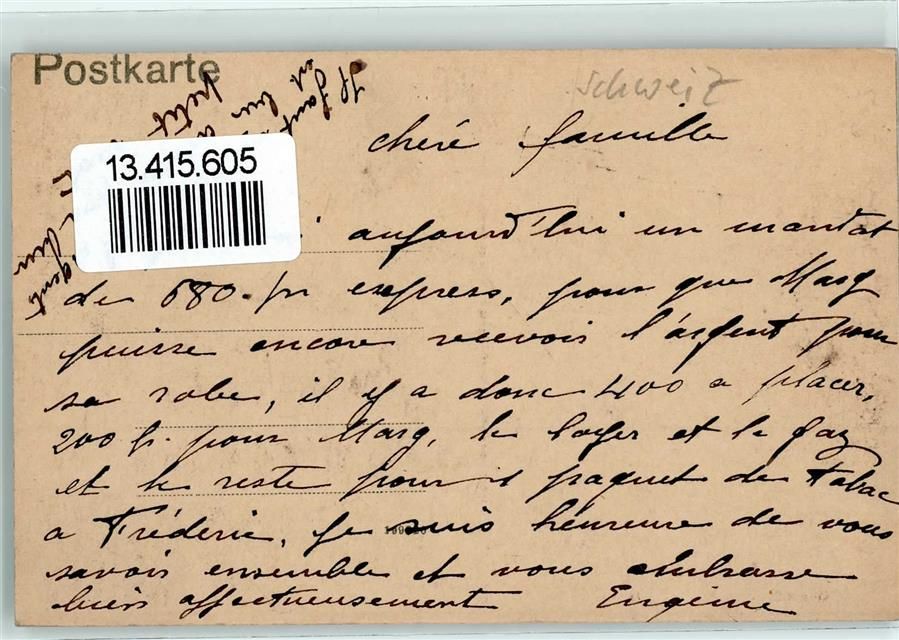 Postkarte
Schweiz
13.415.605
chère famille
aujourd'hui un mandat
de 680 fr express, pour que Marg
puisse encore recevoir l'argent pour
sa robe, il y a donc 400 a placer,
200 fr. pour Marg, le loyer et le gaz
et le reste pour 1 paquet de Tabac
a Fréderic, Je suis héureuse de vous
savoir ensemble et vous embrasse
bien affectueusement Eugénie